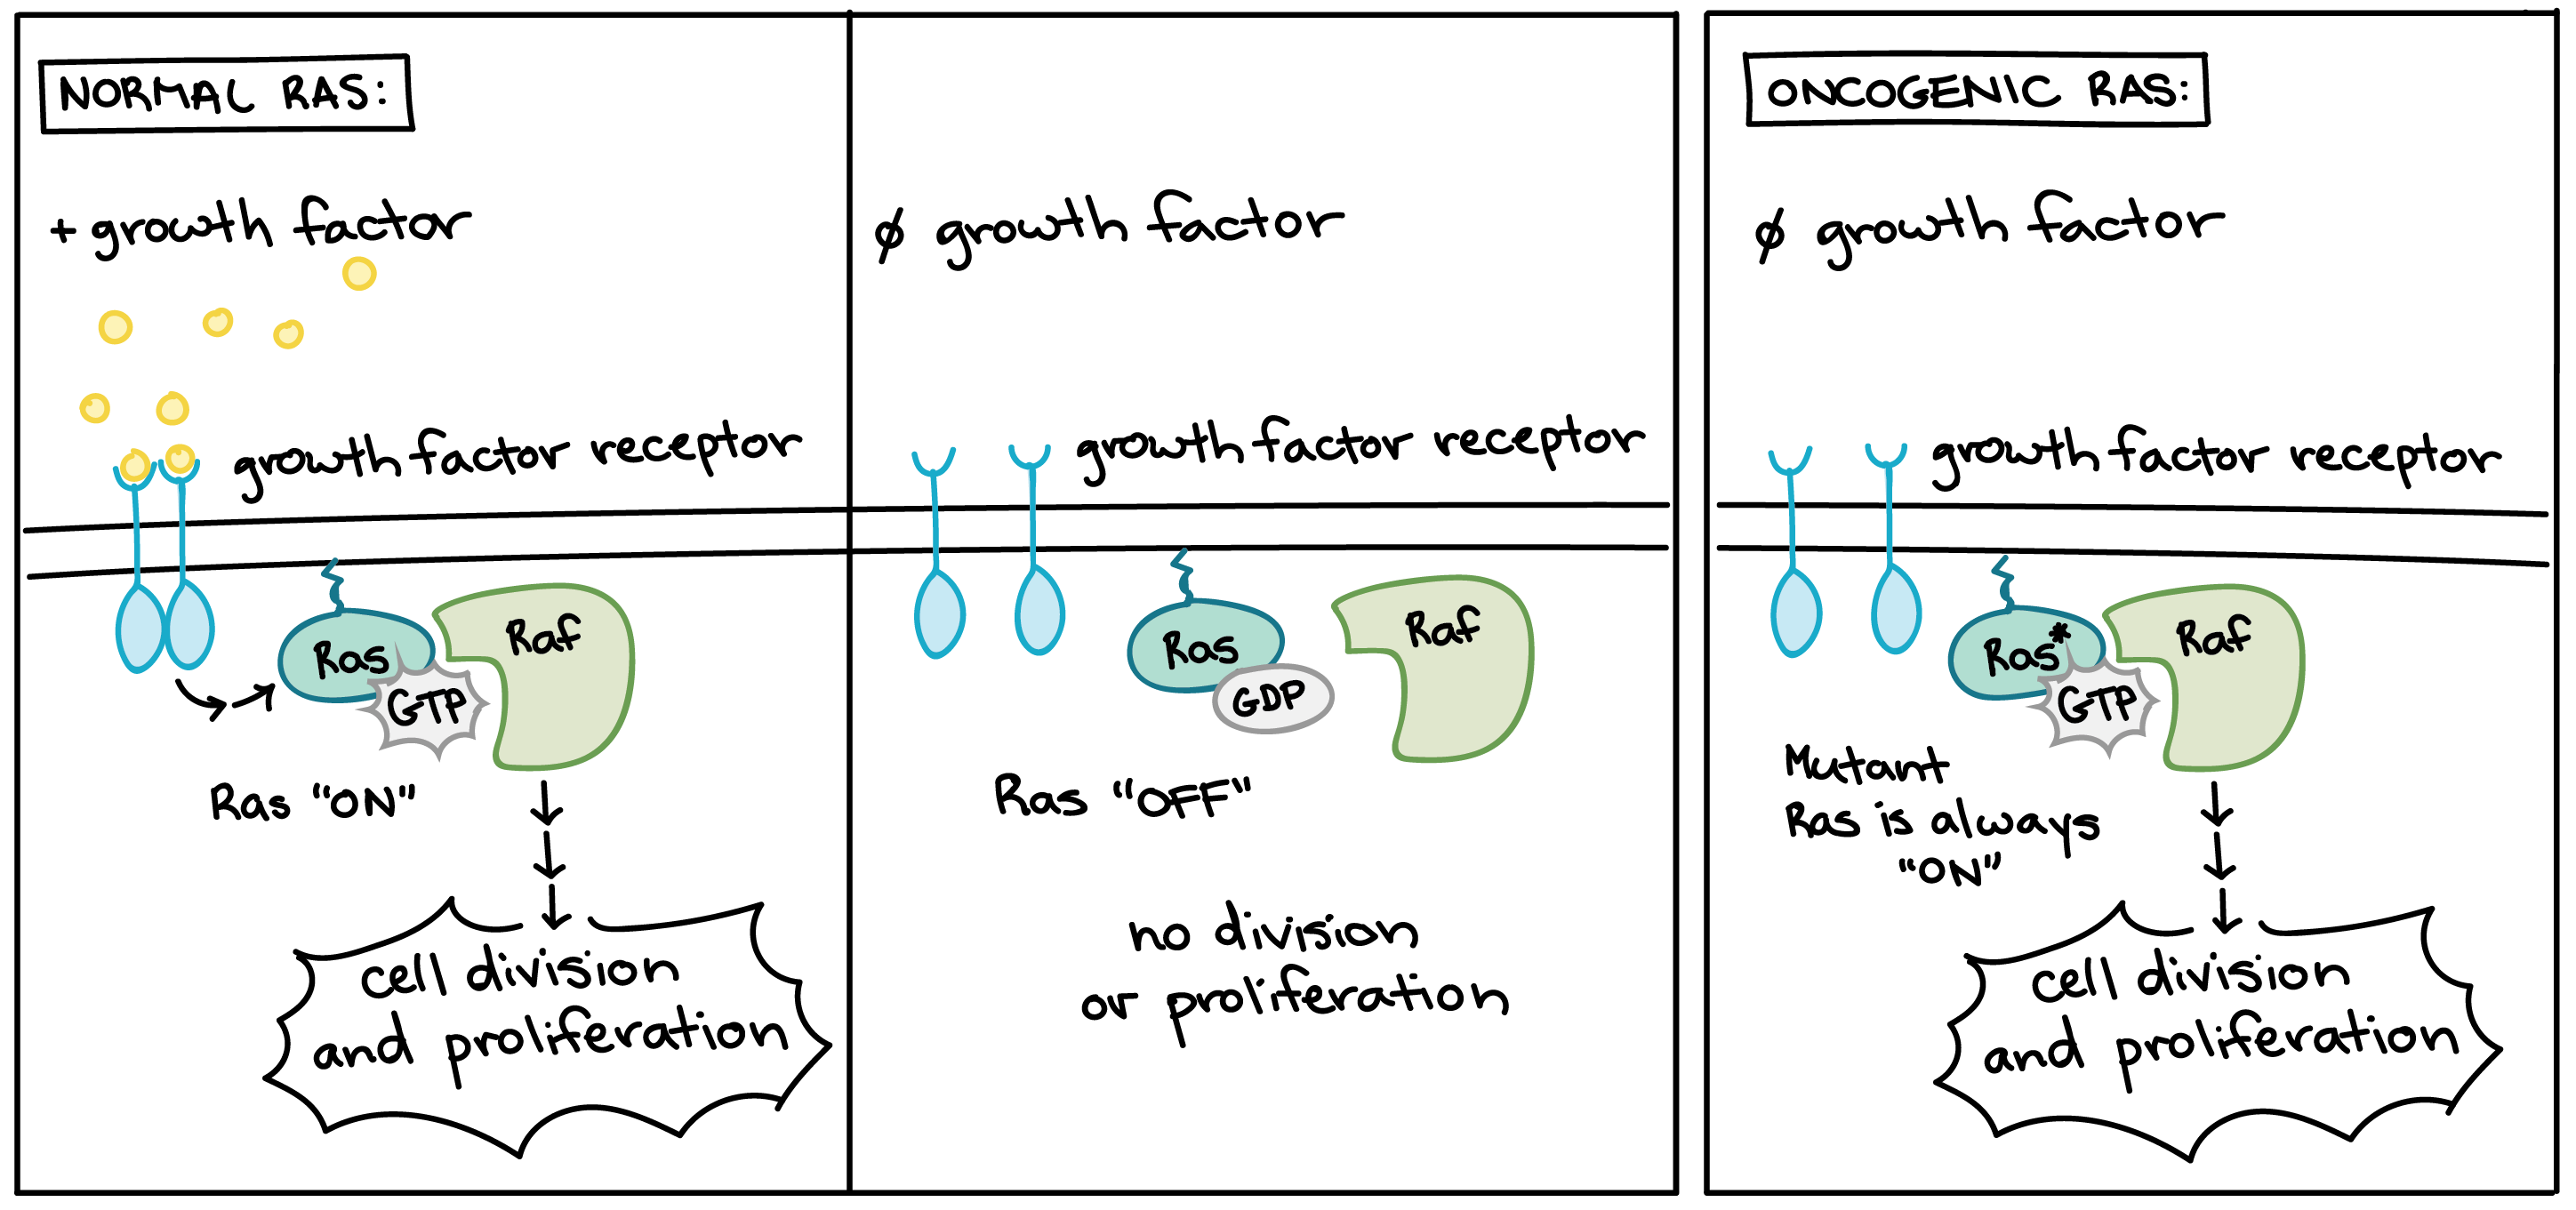 NORMAL RAS:
+ growth factor
growth factor receptor
Ras
GTP
Raf
Ras "ON"
cell division
and proliferation
ø growth factor
growth factor receptor
Ras
GDP
Raf
Ras "OFF"
no division
or proliferation
ONCOGENIC RAS:
ø growth factor
growth factor receptor
Ras*
GTP
Raf
Mutant
Ras is always
"ON"
cell division
and proliferation